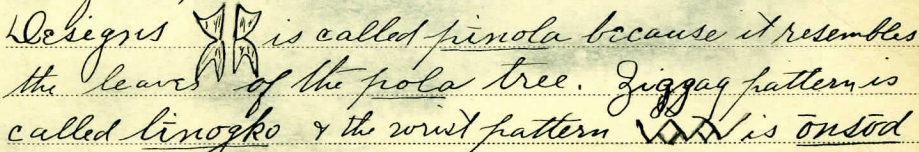 Designs is called pinola because it resembles
the leaves of the pola tree. Ziggag pattern is
called linogko & the wrist pattern is ōnsōd